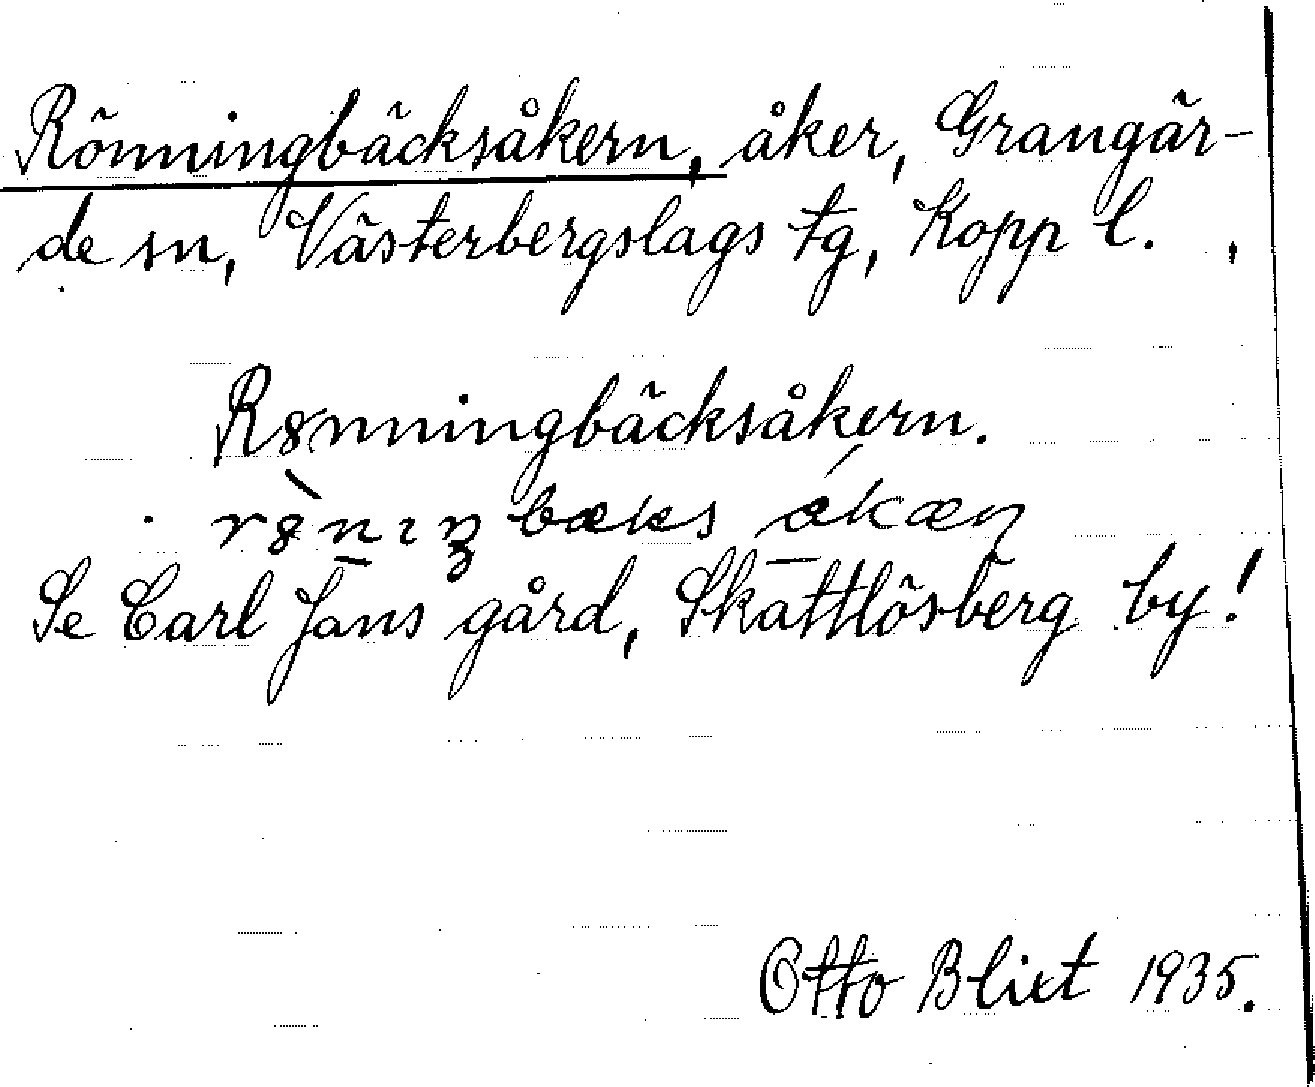 Rönningbäcksåkern, åker, Grangär-
de sn, Västerbergslags tg, Kopp l.
Rønningbäcksåkern.
Se Carl Jans gård, Skattlösberg by!
Otto Blixt 1935.